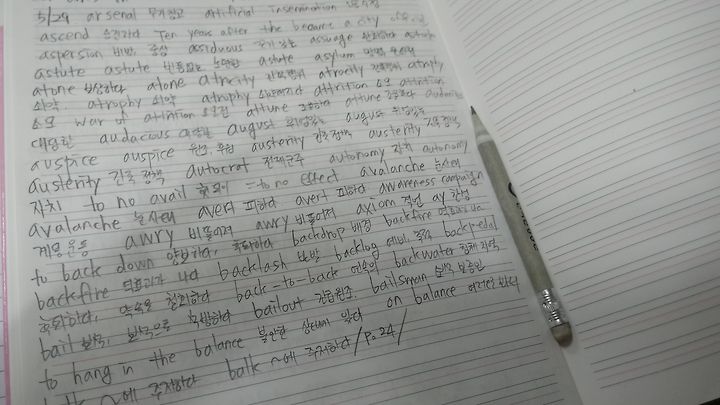 5/29 arsenal 무기창고 artificial insemination
ascend 승진하다 Ten years after the became a city
aspersion 비방 중상 assiduous 끈기 있는 assuage 완화하다
astute astute 빈틈없는 astute asylum
atone 보상하다 atone atrocity atrocity atrophy
쇠약 atrophy 쇠약 atrophy attrition 소모 attrition
소모 war of attrition 소모전 attune attune
대담한 audacious 대담한 august 위엄있는 august 위엄있는
auspice auspice 원조, 후원 austerity 긴축정책 austerity 긴축정책
austerity 긴축 정책 autocrat 전제군주 autonomy 자치 autonomy
자치 to no avail = to no effect avalanche 눈사태
avalanche 눈사태 avert 피하다 avert 피하다 awareness campaign
계몽운동 awry 비뚤어져 awry 비뚤어져 axiom 격언 ay 찬성
to back down 양보하다, 철회하다 backdrop 배경 backfire
backfire 역효과가 나다 backlash 반발 backlog backpedal
철회하다, 약속을 철회하다 back-to-back 연속의 backwater 침체 지역
bail 보석, 보석으로 bailout 긴급원조 bailsman 보석 보증인
to hang in the balance 불안한 상태에 있다 on balance
~에 주저하다 balk ~에 주저하다 /p.24/